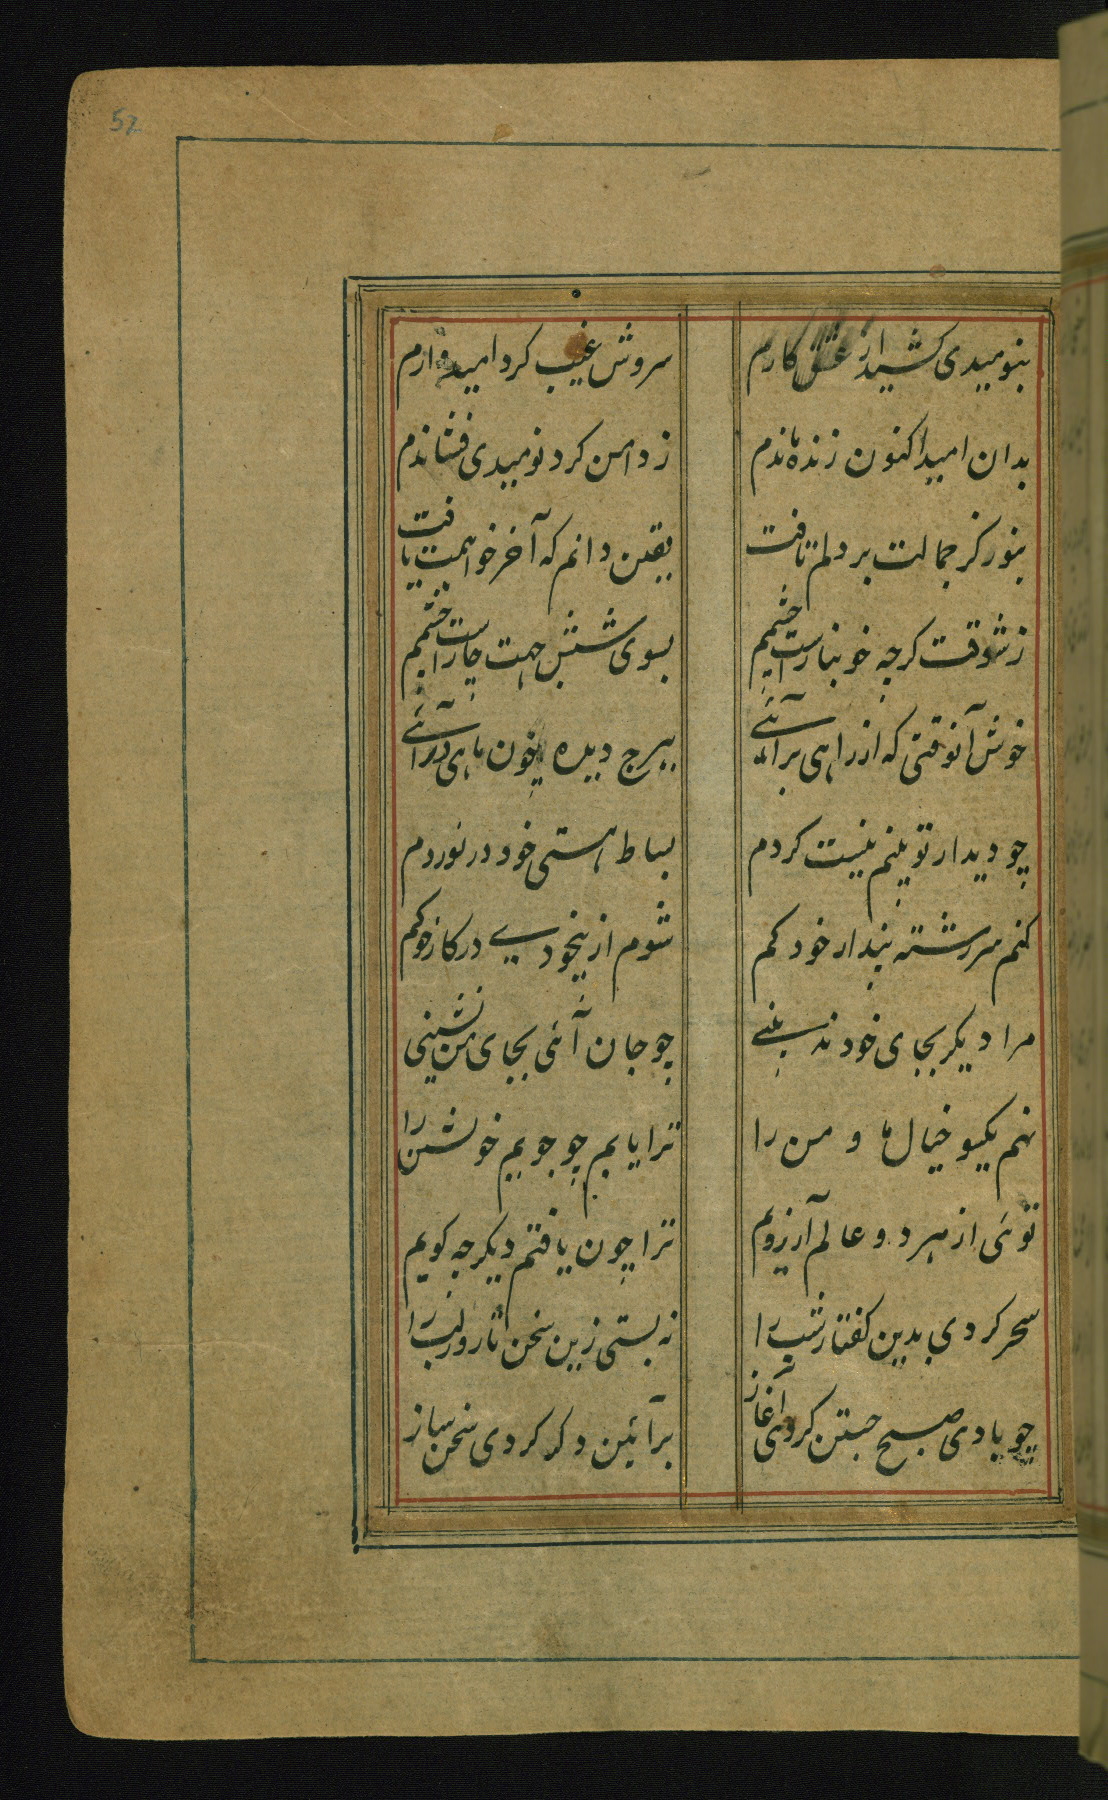 52
بنومیدی کشید از عشق کارم سروش غیب کرد امیدوارم
بدان امید اکنون زنده ماندم ز دامن کرد نومیدی فشاندم
بنور کز جمالت بر دلم تافت یقین دانم که آخر خواهمت یافت
ز شوقت کرچه خونبارست چشمم بسوی شش جهت چارست چشمم
خوش آنوقتی که از راهی برآئی ببرج دیده چون ماهی درآئی
چو دیدار تو بینم نیست کردم بساط هستی خود در نوردم
کنم سررشته پندار خود کم شوم از بیخودی در کار خود کم
مرا دیکر بجای خود نه بینی چو جان آئی بجای من نشینی
نهم یکسو خیال ما و من را ترا یابم چو جویم خویشتن را
توئی از هر دو عالم آرزویم ترا چون یافتم دیکر چه کویم
سحر کردی بدین کفتار شب را نه بستی زین سخن تا روز لب را
چو بادی صبح جستن کردی آغاز برآئین دکر کردی سخن ساز